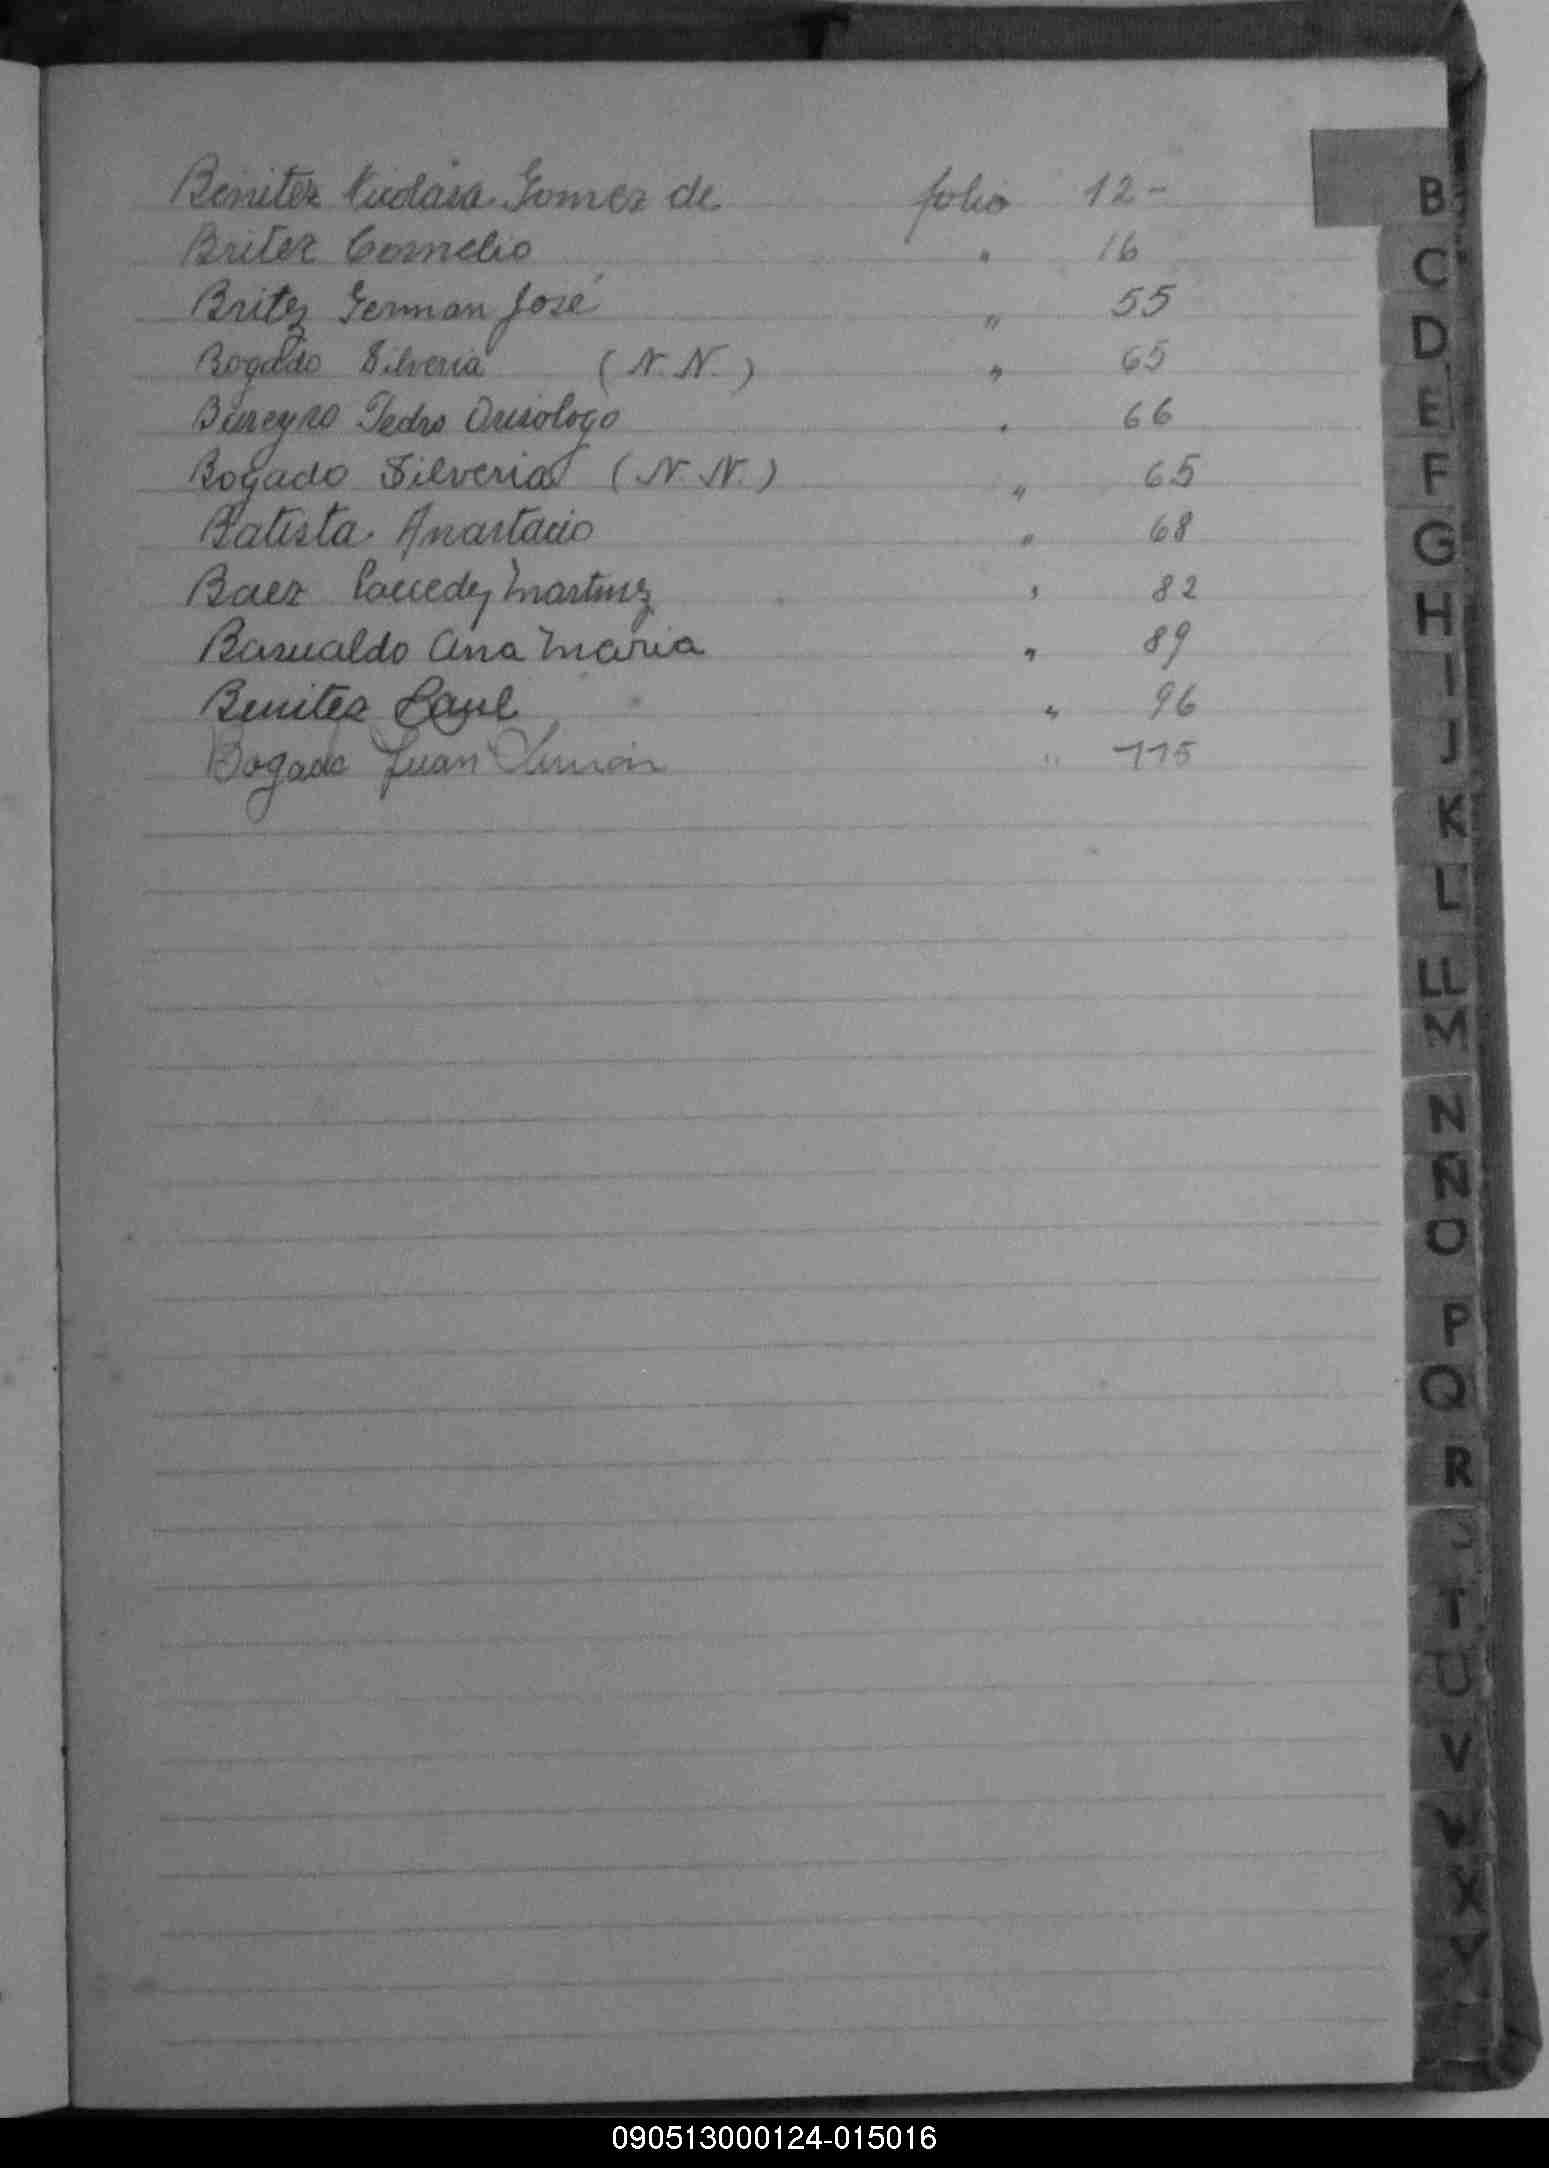 Benitez Nicolasa Gomez de folio 12-
Britez Cornelio " 16
Britez German José " 55
Bogado Silveria (N.N.) " 65
Pedro 66
Bogado Silveria (N.N.) " 65
Batista Anastacio " 68
Baez Martinez " 82
Basualdo Ana Maria " 89
Benitez Raul " 96
Bogado Juan Simón " 115
B
C
D
E
F
G
H
I
J
K
L
LL
M
N
Ñ
O
P
Q
R
T
U
V
X
Y
090513000124-015016